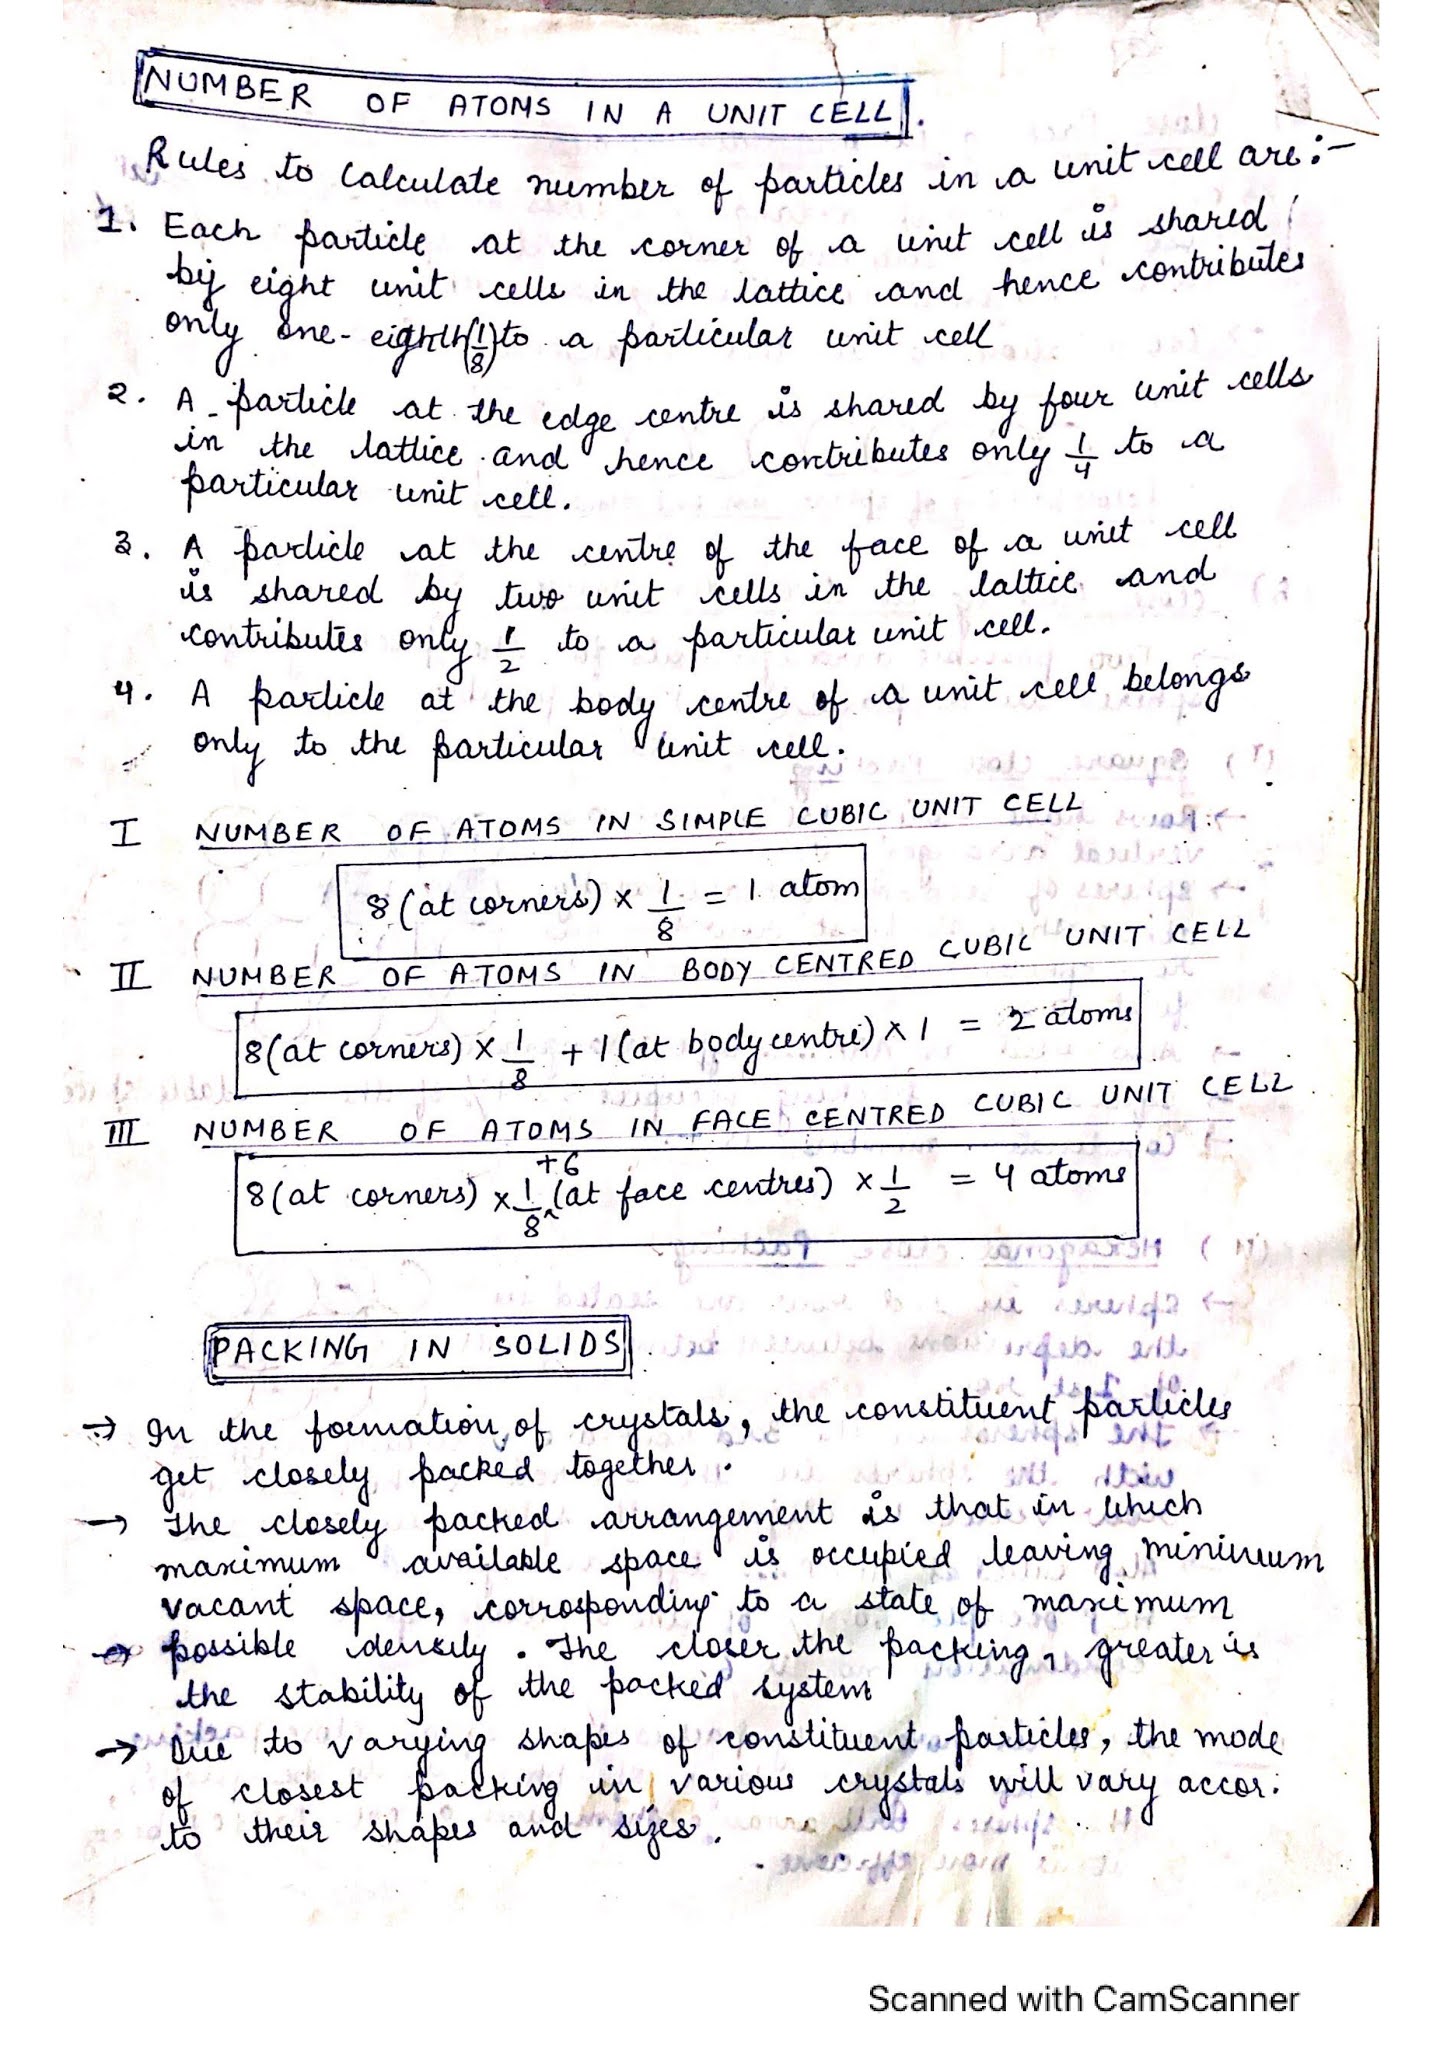 NUMBER OF ATOMS IN A UNIT CELL.
Rules to Calculate number of particles in a unit cell are:-
1. Each particle at the corner of a unit cell is shared
by eight unit cells in the lattice and hence contributes
only one-eighth(1/8) to a particular unit cell
2. A particle at the edge centre is shared by four unit cells
in the lattice and hence contributes only 1/4 to a
particular unit cell.
3. A particle at the centre of the face of a unit cell
is shared by two unit cells in the lattice and
contributes only 1/2 to a particular unit cell.
4. A particle at the body centre of a unit cell belongs
only to the particular unit cell.
I NUMBER OF ATOMS IN SIMPLE CUBIC UNIT CELL
8 (at corners) × 1/8 = 1 atom
II NUMBER OF ATOMS IN BODY CENTRED CUBIC UNIT CELL
8 (at corners) × 1/8 + 1 (at body centre) × 1 = 2 atoms
III NUMBER OF ATOMS IN FACE CENTRED CUBIC UNIT CELL
8 (at corners) × 1/8 +6 (at face centres) × 1/2 = 4 atoms
PACKING IN SOLIDS
→ In the formation of crystals, the constituent particles
get closely packed together.
→ The closely packed arrangement is that in which
maximum available space is occupied leaving minimum
vacant space, corrosponding to a state of maximum
→ possible density. The closer the packing, greater is
the stability of the packed system
→ Due to varying shapes of constituent particles, the mode
of closest packing in various crystals will vary accor.
to their shapes and sizes.
Scanned with CamScanner